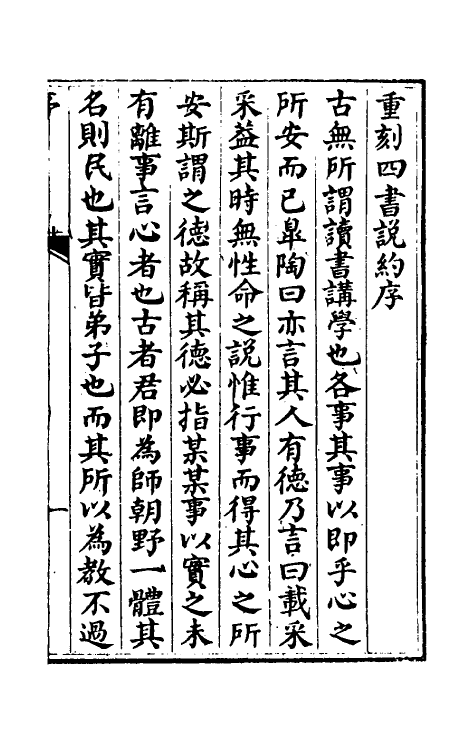 重刻四書説約序
古無所謂讀書講學也各事其事以即乎心之
所安而已皐陶曰亦言其人有德乃言曰載采
采葢其時無性命之説惟行事而得其心之所
安斯謂之德故稱其德必指某某事以實之未
有離事言心者也古者君即為師朝野一體其
名則民也其實皆弟子也而其所以為教不過
一